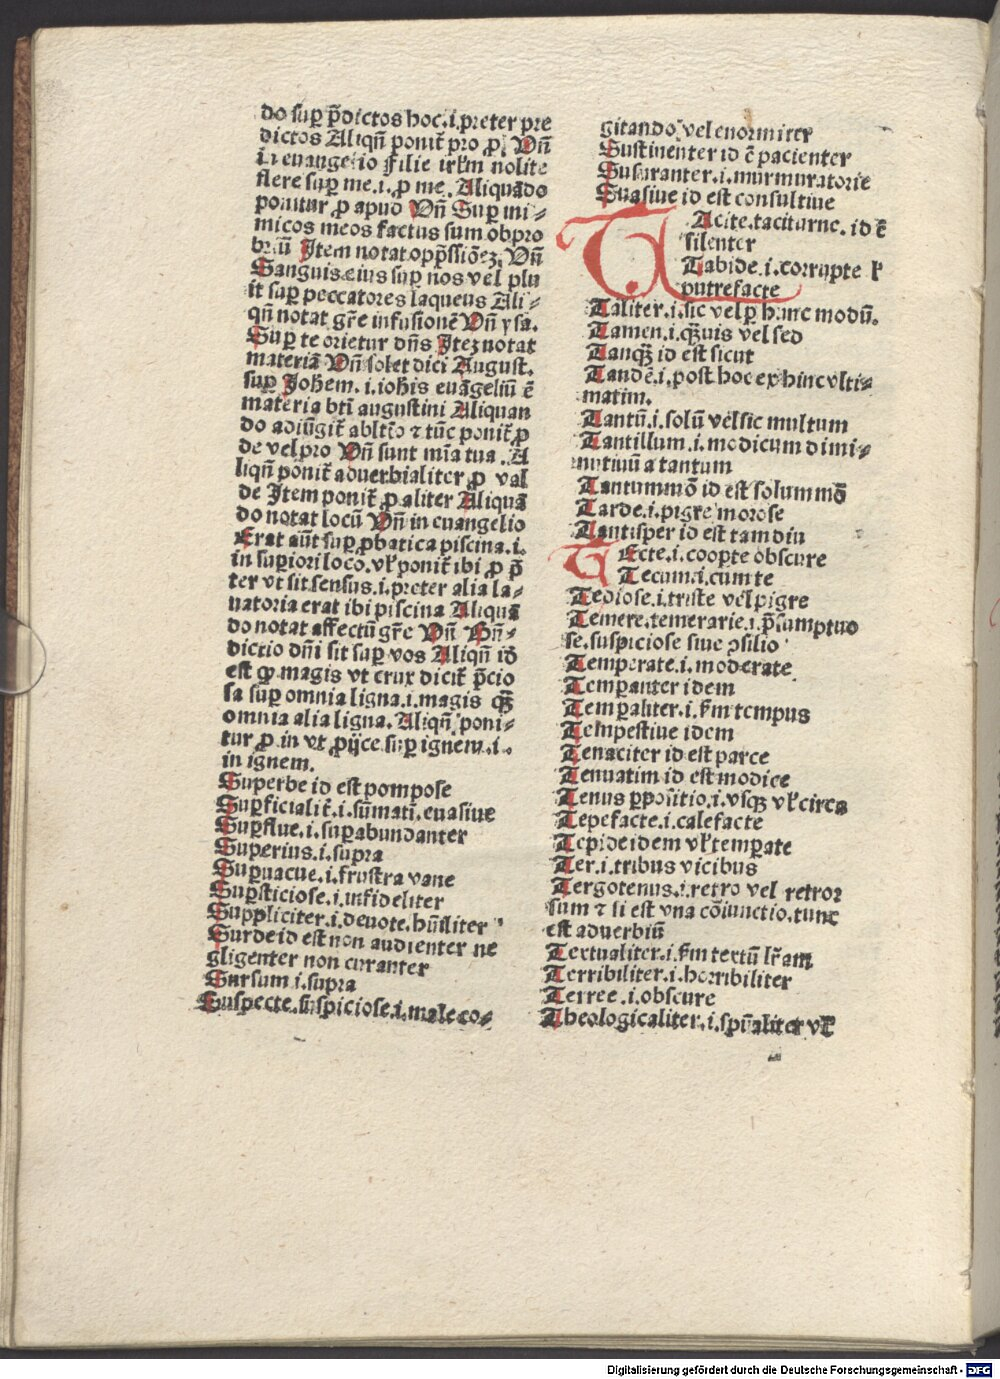 do suꝑ p̄dictos hoc.i.preter pre
dictos Aliqn̄ ponit̄ pro ꝓ. Vn̄
in euangelio Filie irlm̄ nolite
flere suꝑ me.i.ꝓ me. Aliquādo
ponitur ꝓ apud Vn̄ Suꝑ ini⸗
micos meos factus sum obpro
briū Item notat opp̄ssiōeꝫ. Vn̄
Sanguis eius suꝑ nos vel plu
it suꝑ peccatores laqueus Ali⸗
qn̄ notat gr̄e infusionē Vn̄ ysa.
Suꝑ te orietur dn̄s Iteꝫ notat
materiā Vn̄ solet dici August.
suꝑ Johem. i. iohis euāgeliū ē
materia bt̄i augustini Aliquan
do adiūgit̄ ablt̄io ⁊ tūc ponit̄ ꝓ
de vel pro Vn̄ sunt mīa tua . A
liqn̄ ponit̄ aduerbialiter ꝓ val
de Item ponit̄ ꝓ aliter Aliquā
do notat locū Vn̄ in euangelio
Erat aūt suꝑ ꝓbatica piscina.i.
in suꝑiori loco. vl̓ ponit̄ ibi ꝓ p̄
ter vt sit sensus.i.preter alia la⸗
uatoria erat ibi piscina Aliquā
do notat affectū gr̄e Vn̄ Bn̄⸗
dictio dn̄i sit suꝑ vos Aliqn̄ id̄
est ꝙ magis vt crux dicit̄ p̄cio
sa suꝑ omnia ligna.i.magis qꝫ̄
omnia alia ligna. Aliqn̄ poni⸗
tur ꝓ in vt ꝓijce suꝑ ignem.i.
in ignem.
Superbe id est pompose
Suꝑficialit̄.i.sūmati.euasiue
Suꝑflue.i.suꝑabundanter
Superius.i.supra
Suꝑuacue.i.frustra vane
Suꝑsticiose.i.infideliter
Suppliciter.i.deuote.hūiliter
Surde id est non audienter ne
gligenter non curanter
Sursum i.supra
Suspecte.suspiciose.i.male co⸗
gitando vel enormiter
Sustinenter id ē pacienter
Susurranter.i.murmuratorie
Suasiue id est consultiue
TAcite.taciturne. id ē
silenter
Tabide.i.corrupte vl̓
putrefacte
Taliter.i.sic vel ꝑ hunc modū.
Tamen.i.qꝫ̄uis vel sed
Tanqꝫ̄ id est sicut
Tandē.i.post hoc ex hinc vlti⸗
matim.
Tantū.i.solū vel sic multum
Tantillum.i.modicum dimi⸗
nutiuū a tantum
Tantummō id est solummō
Tarde.i.pigre morose
Tantisper id est tam diu
TEcte.i.cooꝑte obscure
Tecum.i.cum te
Tediose.i.triste vel pigre
Temere.temerarie.i.p̄sumptuo
se.suspiciose siue ↄsilio
Temperate.i.moderate
Temꝑanter idem
Temꝑaliter.i.ẜm tempus
Tempestiue idem
Tenaciter id est parce
Tenuatim id est modice
Tenus p̄positio.i.vsqꝫ vl̓ circa
Tepefacte.i.calefacte
Tepide idem vl̓ temꝑate
Ter.i.tribus vicibus
Tergotenus.i.retro vel retror
sum ⁊ si est vna cōiunctio.tunc
est aduerbiū
Textualiter.i.ẜm textū lr̄am
Terribiliter.i.horribiliter
Terree.i.obscure
Theologicaliter.i.spūaliter vl̓
Digitalisierung gefördert durch die Deutsche Forschungsgemeinschaft - DFG